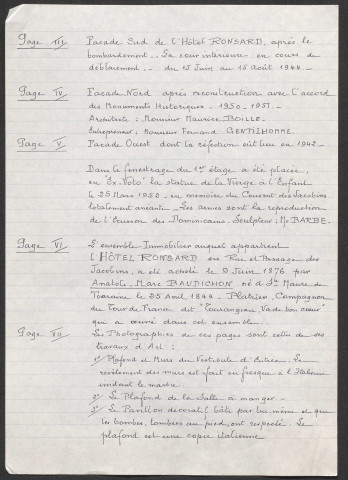 Page III Facade Sud de l'Hôtel RONSARD, après le
bombardement... La cour intérieure en cours de
déblaiement. du 15 Juin au 15 Août 1944.
Page IV Facade Nord après reconstruction avec l'accord
des Monuments Historiques - 1950-1951.
Architecte : Monsieur Maurice BOILLE.
Entrepreneur : Monsieur Fernand GENTILHOMME.
Page V Facade Ouest dont la réfection eut lieu en 1942
Dans le fenestrage du 1er étage a été placée,
en "Ex-Voto" la statue de la Vierge à l'Enfant
le 25 Mars 1950. en mémoire du Couvent des Jacobins
totalement anéanti. Les armes sont la reproduction
de l'Ecusson des Dominicains. Sculpteur : Mr BARBE.
Page VI L'ensemble Immobilier auquel appartient
l'HÔTEL RONSARD ou Rue et Passage des
Jacobins, a été acheté le 9 Juin 1876 par
Anatole, Marc BAUDICHON né à Ste Maure de
Touraine le 25 Avril 1844. Platrier, Compagnon
du Tour de France dit "Tourangeau Va de bon cœur"
qui a œuvré dans cet ensemble.
Page VII Les Photographies de ces pages sont celles de ses
travaux d'Art :
1° Plafond et Murs du Vestibule d'Entrée. Le
revêtement des murs est fait en fresque à l'Italienne
imitant le marbre.
2° Le Plafond de la Salle à manger -
3° Le Pavillon décoratif bâti par lui-même et que
les bombes, tombées au pied, ont respecté. Le
plafond est une copie italienne